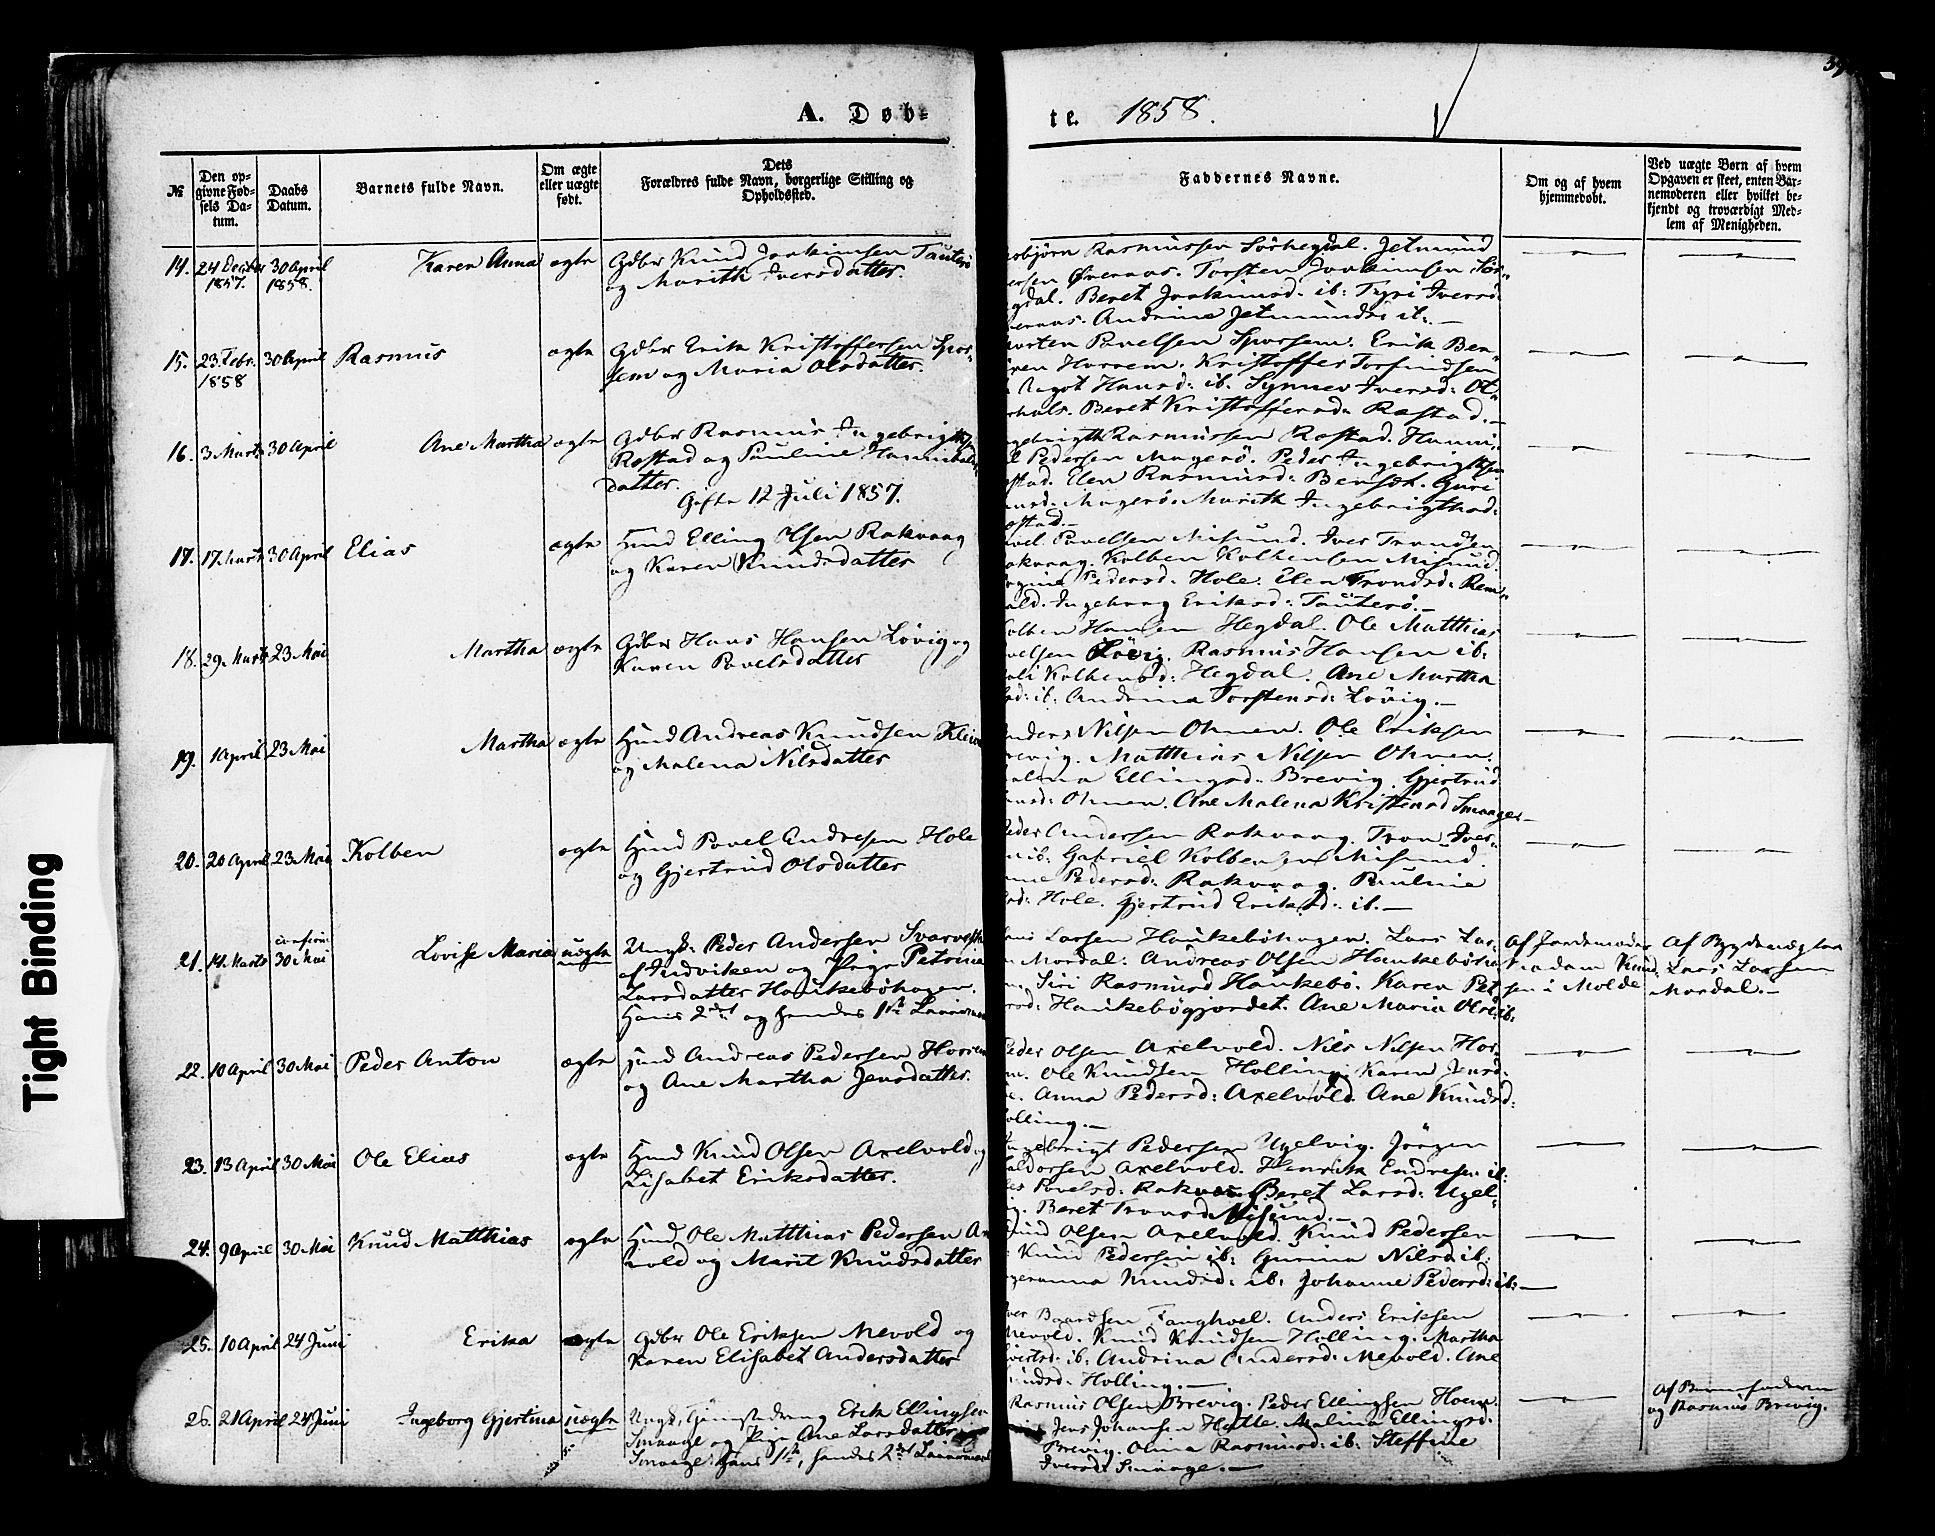 39
A. Døb-
te. 1858.
№
Den op-
givne Fød-
sels Da-
tum.
Daabs
Datum.
Barnets fulde Navn.
Om ægte
eller uægte
født.
Dets
Forældres fulde Navn, borgerlige Stilling og
Opholdssted.
Faddernes Navne.
Om og af hvem
hjemmedøbt.
Ved uægte Børn af hvem
Opgaven er skeet, enten Bar-
nemoderen eller hvilket be-
kjendt og troværdigt Med-
lem af Menigheden.
14. 24 Decbr 1857. 30 April 1858. Karen Anna ægte
Gdbr Knud Joakimsen Tauterö
og Marith Iversdatter.
Rasmussen Sörhegdal. Jetmund
Överaas. Torsten Joakimsen Sör-
gdal. Beret Joakimsd. ib: Iversd:
Andrine Jetmundsd: ib: —
15. 23 Febr. 1858 30 April Rasmus ægte
Gdbr Erik Kristoffersen Spor-
sem og Maria Olsdatter.
Povelsen Sporsem. Erik Ben-
Horrem. Kristoffer Torfindsen
Hansd: ib: Synnev Iversd: Ot-
Beret Kristoffersd: Røstad. —
16. 3 Marts 30 April Ane Martha ægte
Gdbr Rasmus Ingebrigtsen
Røstad og Pauline Hannibals-
datter.
Gifte 12 Juli 1857.
Rasmussen Røstad. Hanni-
Pedersen Magerö. Peder Ingebrigtsen
Elen Rasmusd: Guri
Magerö. Marith Ingebrigtsd:
17. 17 Marts 30 April Elias ægte
Hmd Elling Olsen Rakvaag
og Karen Knudsdatter
Povelsen Misund. Iver Trondsen
Kolben Kolbensen Misund.
Pedersd: Hole. Elen Trondsd: Rem-
Ingeborg Eriksd: Tauterö. —
18. 29 Marts 23 Mai Martha ægte
Gdbr Hans Hansen Lövig og
Karen Povelsdatter
Hansen Hegdal. Ole Matthias
Lövig. Rasmus Hansen ib:
Kolbensd: Hegdal. Ane Martha
ib: Andrina Torstensd: Lövig. —
19. 1 April 23 Mai Martha ægte
Hmd Andreas Knudsen Kleive
og Malena Nilsdatter
Nilsen Ohnen. Ole Eriksen
Matthias Nilsen Ohnen.
Ellingsd: Brevig. Gjertrud
Ohnen. Ane Malena Kristensd
20. 20 April 23 Mai Kolben ægte
Hmd Povel Endresen Hole
og Gjertrud Olsdatter
Andersen Rakvaag. Tron Iver-
ib: Gabriel Kolbensen Misund.
Pedersd: Rakvaag. Pauline
Hole. Gjertrud Eriksd: ib. —
21. 14 Marts 30 Mai Lovise Maria uægte
Ungk: Peder Andersen
af Indviken og Pige Petrine
Larsdatter Haukebøhagen.
Hans 2det og hendes 1ste Leiermaal
Larsen Haukebøhagen. Lars Lar-
Mordal: Andreas Olsen Haukebøha-
Siri Rasmusd Haukebø. Karen Pet-
Haukebøgjordet. Ane Maria Olsd ib:
Af Jordemoder
Madam Knud-
sen i Molde
Af
Lars Larsen
Mordal. —
22. 10 April 30 Mai Peder Anton ægte
Hmd Andreas Pedersen Horrem
og Ane Martha Jensdatter.
Peder Olsen Axelvold. Nils Nilsen Hor-
Ole Knudsen Holling. Karen Jensd:
Anna Pedersd: Axelvold. Ane Knudsd:
Holling. —
23. 13 April 30 Mai Ole Elias ægte
Hmd Knud Olsen Axelvold og
Lisabet Eriksdatter.
Pedersen Ugelvig. Jörgen
Axelvold. Henrik Endresen ib:
Povelsd: Rakvaag. Beret Larsd: Ugel-
Beret Tronsd: Misund. —
24. 9 April 30 Mai Knud Matthias ægte
Hmd Ole Matthias Pedersen Ax-
elvold og Marit Knudsdatter
Knud Olsen Axelvold. Knud Pedersen
Knud Pedersen ib: Gurina Nilsd ib:
Knudsd: ib: Johanne Pedersd: ib: —
25. 10 April 24 Juni Erika ægte
Gdbr Ole Eriksen Mevold og
Karen Elisabet Andersdatter
Iver Baardsen Anders Eriksen
Mevold. Knud Knudsen Holling. Martha
ib: Andrina Andersd: Mevold. Ane
Knudsd: Holling. —
26. 21 April 24 Juni Ingeborg Gjertina uægte
Ungk. Erik Ellingsen
Smaage og Pige Ane Larsdatter
Smaage, hans 1ste, hendes 2det Leiermaal
Rasmus Olsen Brevig. Peder Ellingsen Hoem.
Jens Johansen Malina Ellingsd:
Brevig. Olina Rasmusd: ib: Steffine
Iversd: Smaage. —
Af Barnefaderen
og Rasmus Brevig.
Tight Binding